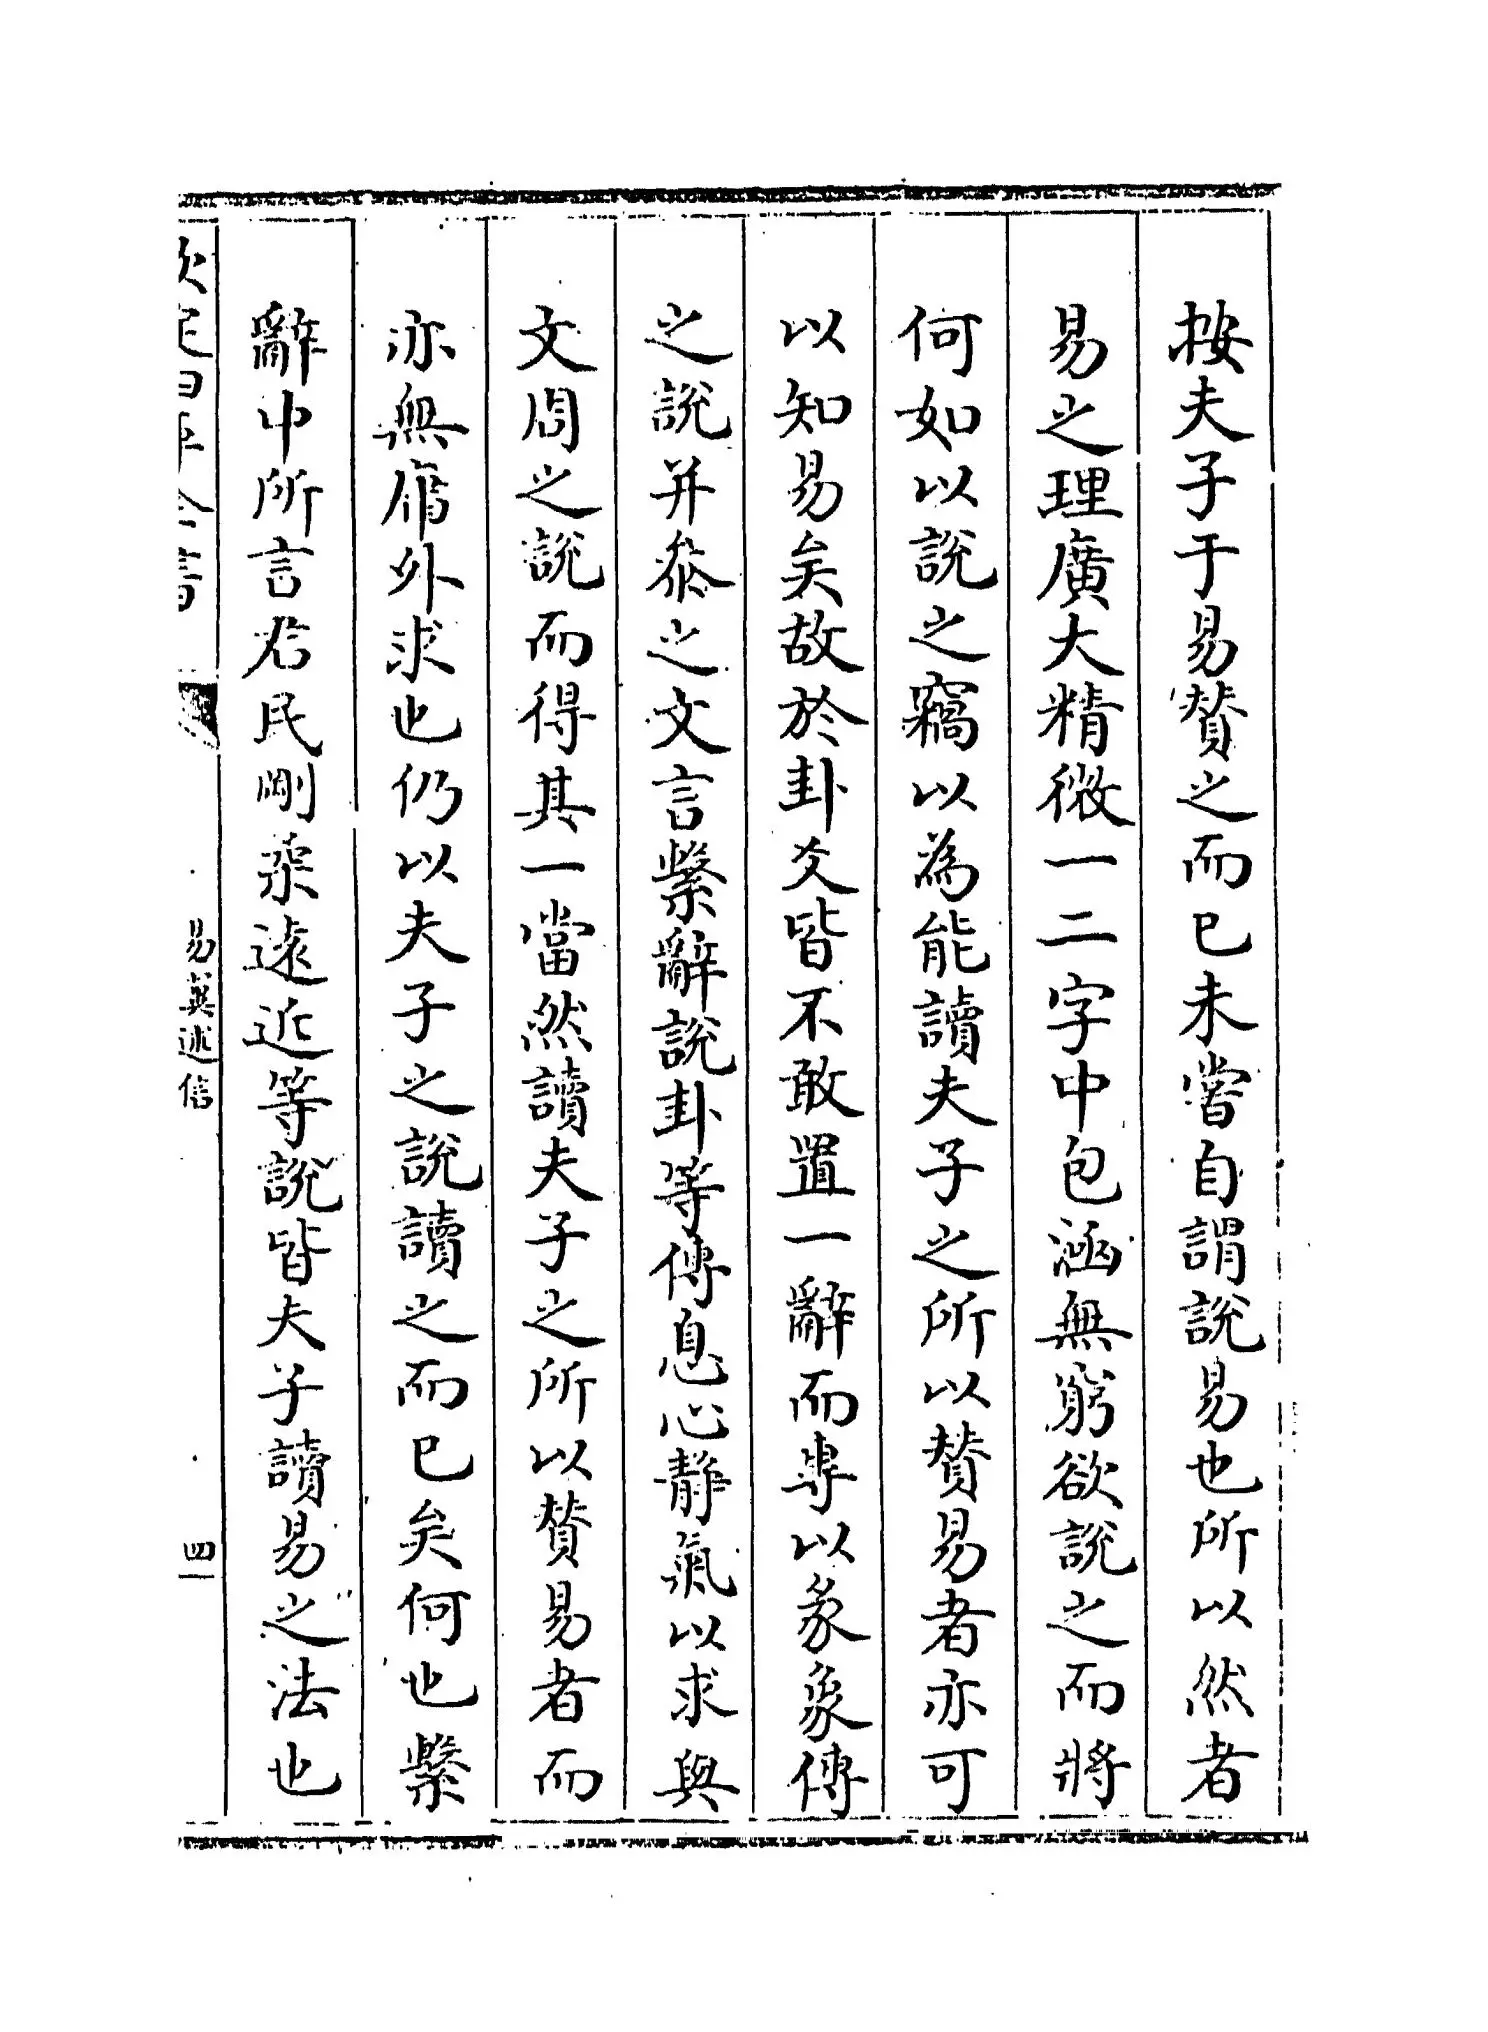 按夫子于易贊之而已未嘗自謂說易也所以然者
易之理廣大精微一二字中包涵無窮欲說之而將
何如以說之竊以為能讀夫子之所以贊易者亦可
以知易矣故於卦爻皆不敢置一辭而專以彖象傳
之說并叅之文言繫辭說卦等傳息心靜氣以求與
文周之說而得其一當然讀夫子之所以贊易者而
亦無庸外求也仍以夫子之說讀之而已矣何也繫
辭中所言君民剛柔遠近等說皆夫子讀易之法也
欽定四庫全書
易箋述信
四